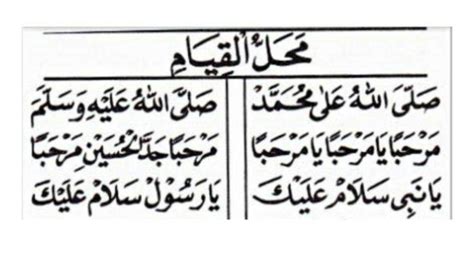 مَحَلُّ الْقِيَامِ
صَلَّى اللهُ عَلَى مُحَمَّدْ صَلَّى اللهُ عَلَيْهِ وَسَلَّمَ
مَرْحَبًا يَا مَرْحَبًا يَا مَرْحَبًا مَرْحَبًا جَدَّ الْحُسَيْنِ مَرْحَبًا
يَا نَبِى سَلَامْ عَلَيْكَ يَا رَسُوْلْ سَلَامْ عَلَيْكَ